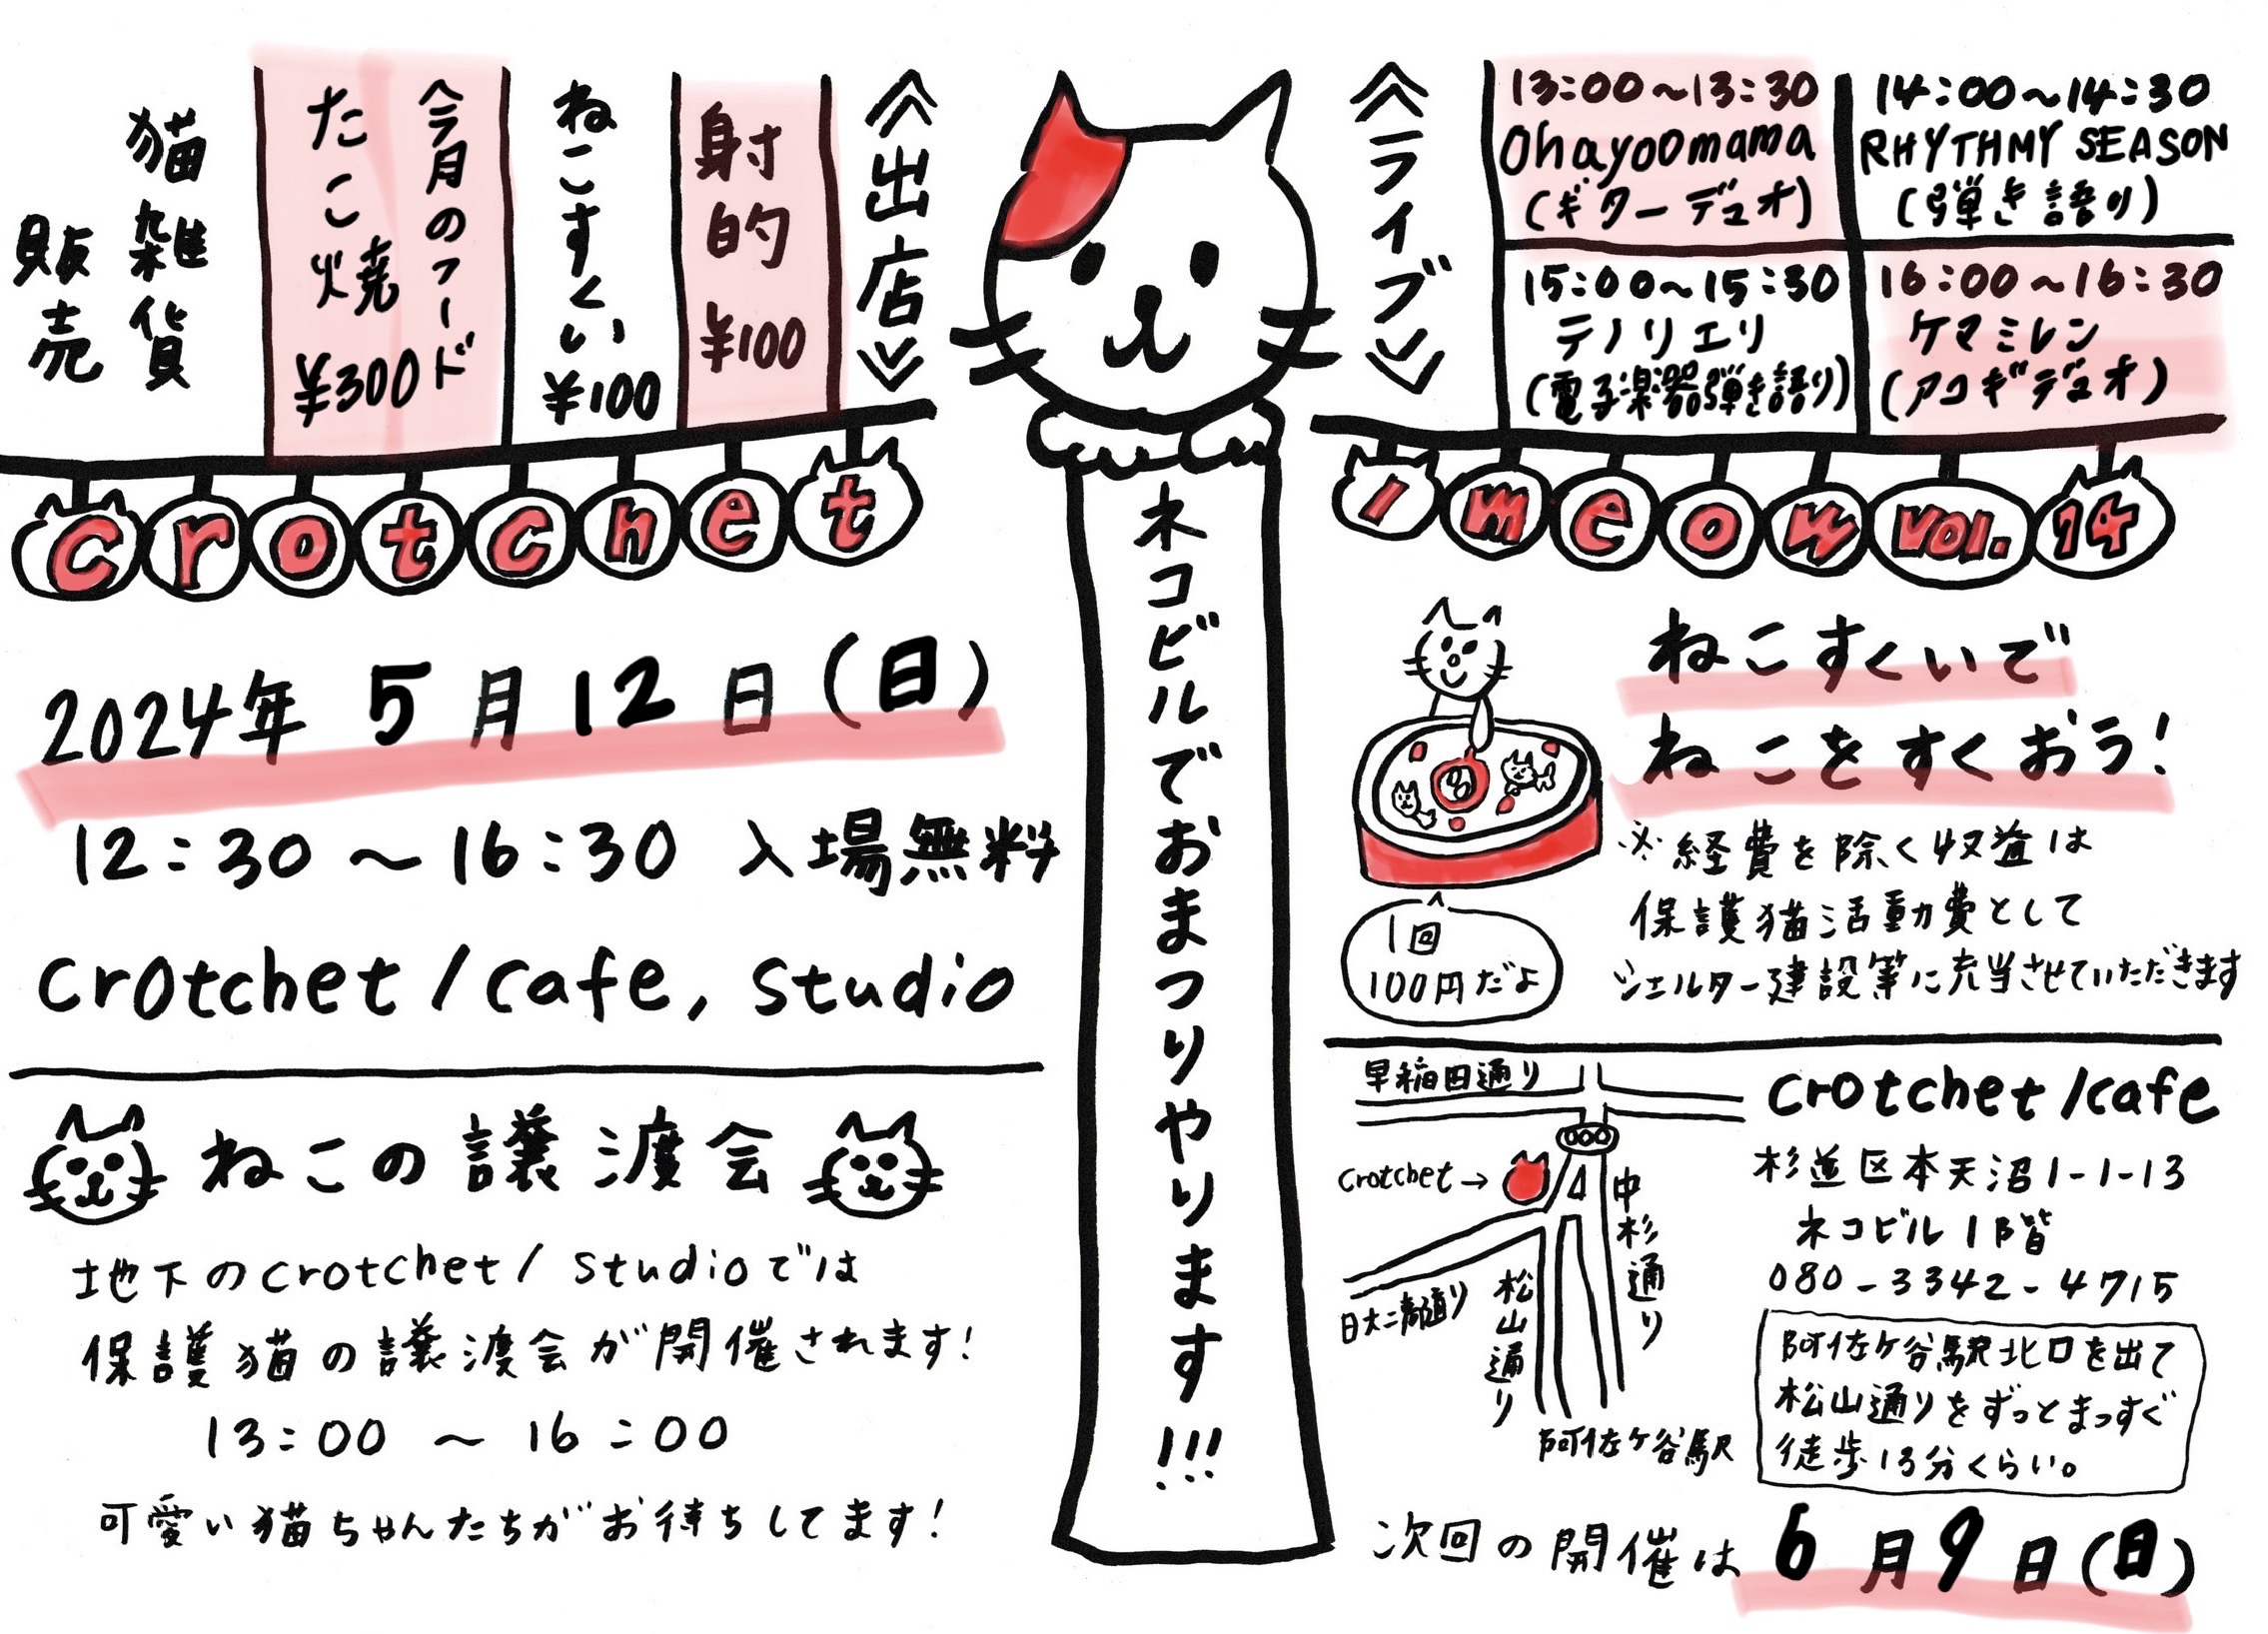 《出店》
射的 ¥100
ねこすくい ¥100
今月のフード
たこ焼 ¥300
猫雑貨
販売
《ライブ》
13:00～13:30
Ohayoomama
(ギターデュオ)
14:00～14:30
RHYTHMY SEASON
(弾き語り)
15:00～15:30
テノリエリ
(電子楽器弾き語り)
16:00～16:30
ケマミレン
(アコギデュオ)
crotchet / meow vol. 14
ネコビルでおまつりやります!!!
2024年 5月12日(日)
12:30～16:30 入場無料
crotchet/cafe, studio
ねこの譲渡会
地下のcrotchet/studioでは
保護猫の譲渡会が開催されます!
13:00 ～ 16:00
可愛い猫ちゃんたちがお待ちしてます!
ねこすくいで
ねこをすくおう!
※経費を除く収益は
保護猫活動費として
シェルター建設等に充当させていただきます
1回
100円だよ
早稲田通り
crotchet→
中杉通り
松山通り
日大二高通り
阿佐ケ谷駅
crotchet/cafe
杉並区本天沼1-1-13
ネコビル1階
080-3342-4715
阿佐ケ谷駅北口を出て
松山通りをずっとまっすぐ
徒歩13分くらい。
次回の開催は 6月9日(日)